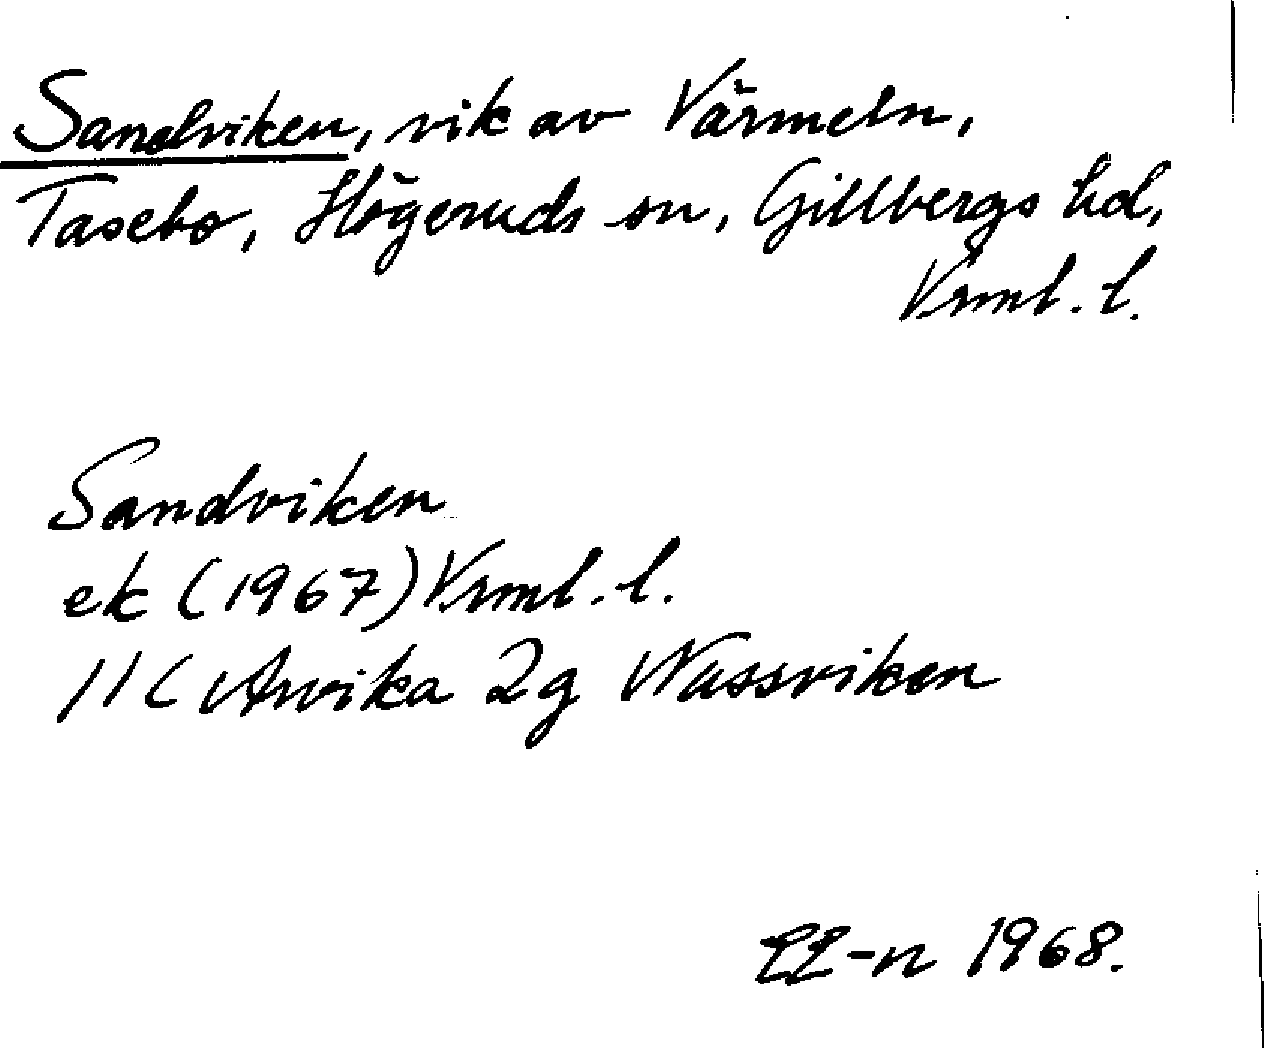 Sandviken, vik av Värmeln,
Tasebo, Högeruds sn, Gillbergs hd,
Vrml. l.
Sandviken
ek (1967) Vrml. l.
11C Arvika 2g Nussviken
EL-n 1968.